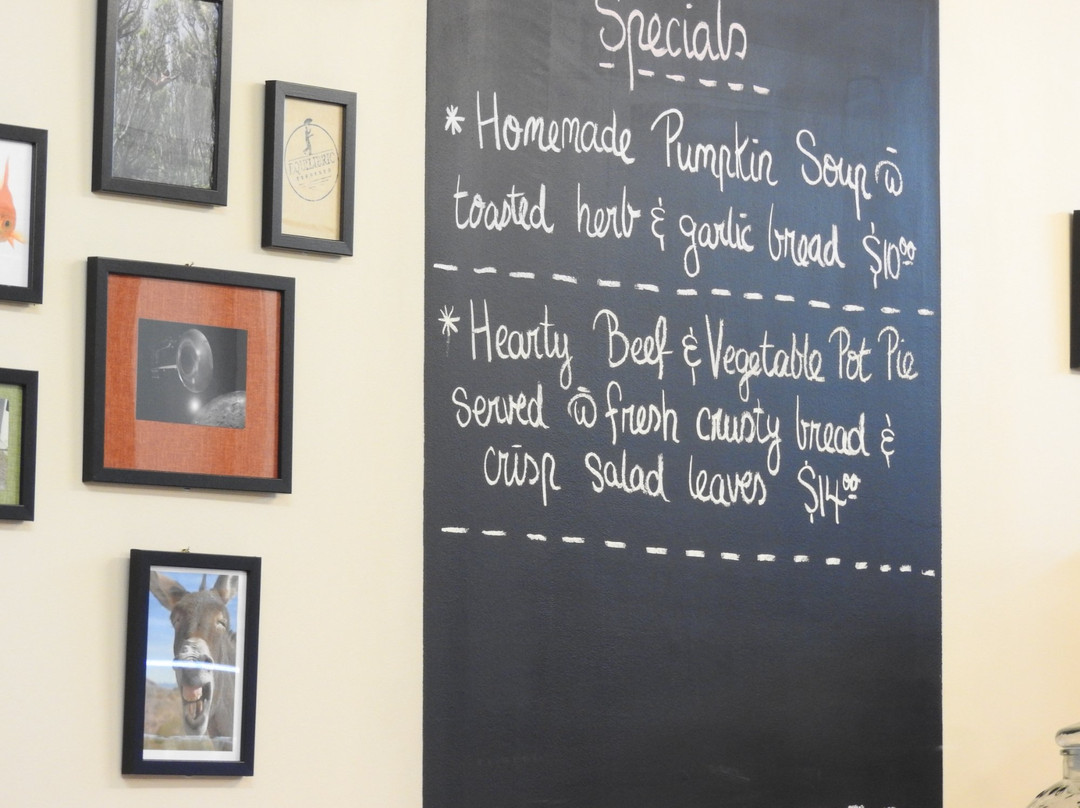 Specials
* Homemade Pumpkin Soup w̄
toasted herb & garlic bread $10⁰⁰
* Hearty Beef & Vegetable Pot Pie
served w̄ fresh crusty bread &
crisp salad leaves $14⁰⁰